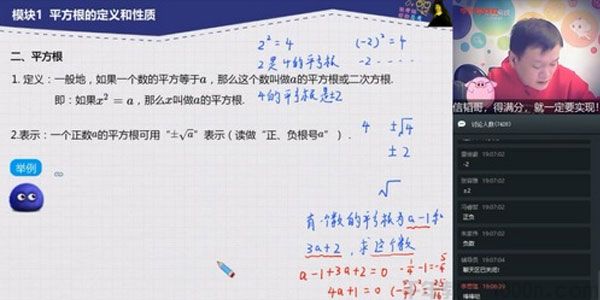 模块1 平方根的定义和性质
二、平方根
1. 定义：一般地，如果一个数的平方等于a，那么这个数叫做a的平方根或二次方根.
即：如果x²=a，那么x叫做a的平方根.
2.表示：一个正数a的平方根可用“±√a”表示（读做“正、负根号a”）.
举例
2²=4 (-2)²=4
2是4的平方根 -2 - - - - -
4的平方根是±2
4 ±√4
±2
√
有个数的平方根为a-1和
3a+2，求这个数
a-1+3a+2=0 -1/4-1=-5/4
4a+1=0 (-5/4)²=25/16
信韬哥，得满分，就一定要实现！
讨论人数(7408)
19:07:02
-2
19:07:02
±2
19:07:02
正负
19:07:02
负数
辅导员 19:07:04
聊天区已关闭!
19:08:39